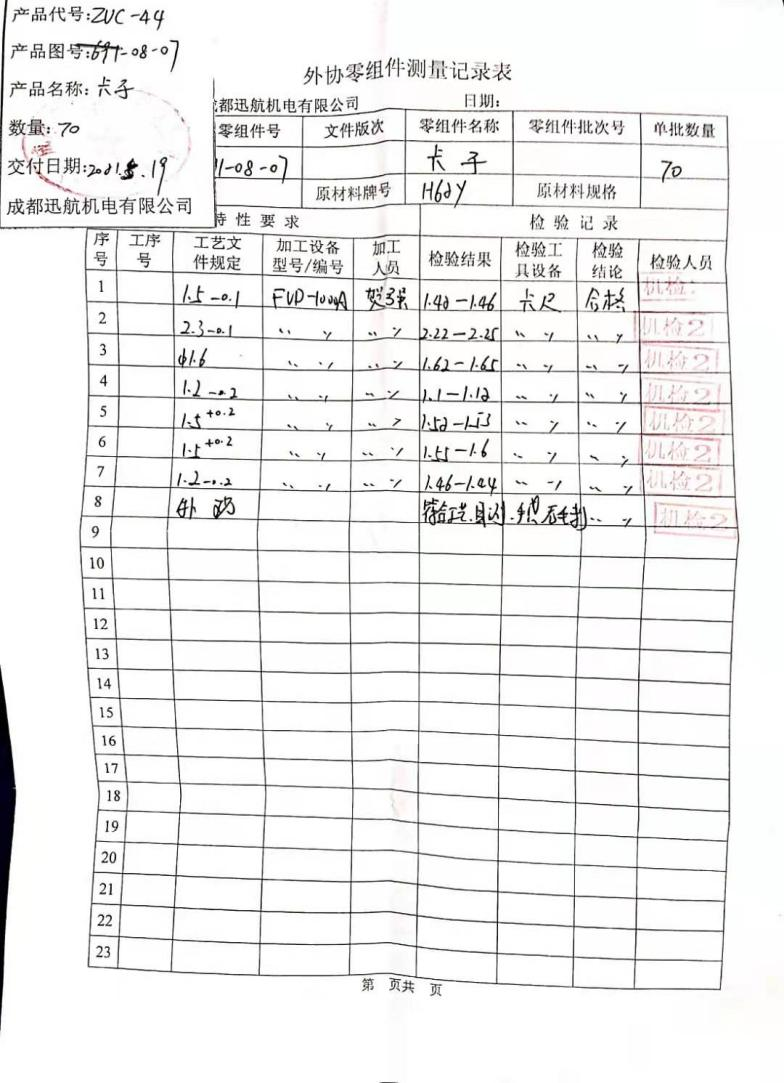 产品代号:ZUC-44
产品图号:691-08-07
产品名称:卡子
数量:70
交付日期:2021.5.19
成都迅航机电有限公司
外协零组件测量记录表
都迅航机电有限公司 日期:
零组件号 文件版次 零组件名称 零组件批次号 单批数量
1-08-07 卡子 70
原材料牌号 H62Y 原材料规格
特性要求 检验记录
序号 工序号 工艺文件规定 加工设备型号/编号 加工人员 检验结果 检验工具设备 检验结论 检验人员
1 1.5-0.1 FVP-1000A 1.42-1.46 卡尺 合格 机检
2 2.3-0.1 〃 〃 2.22-2.25 〃 〃 机检2
3 φ1.6 〃 〃 1.62-1.65 〃 〃 机检2
4 1.2-0.2 〃 〃 1.1-1.12 〃 〃 机检2
5 1.5+0.2 〃 〃 1.52-1.53 〃 〃 机检2
6 1.5+0.2 〃 〃 1.55-1.6 〃 〃 机检2
7 1.2-0.2 〃 〃 1.46-1.44 〃 〃 机检2
8 外 符合工艺.目测.手摸无毛刺 〃 机检2
9
10
11
12
13
14
15
16
17
18
19
20
21
22
23
第 页共 页